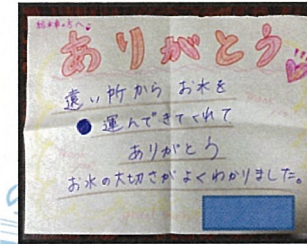 ありがとう
遠い所から お水を
運んできてくれて
ありがとう
お水の大切さがよくわかりました。